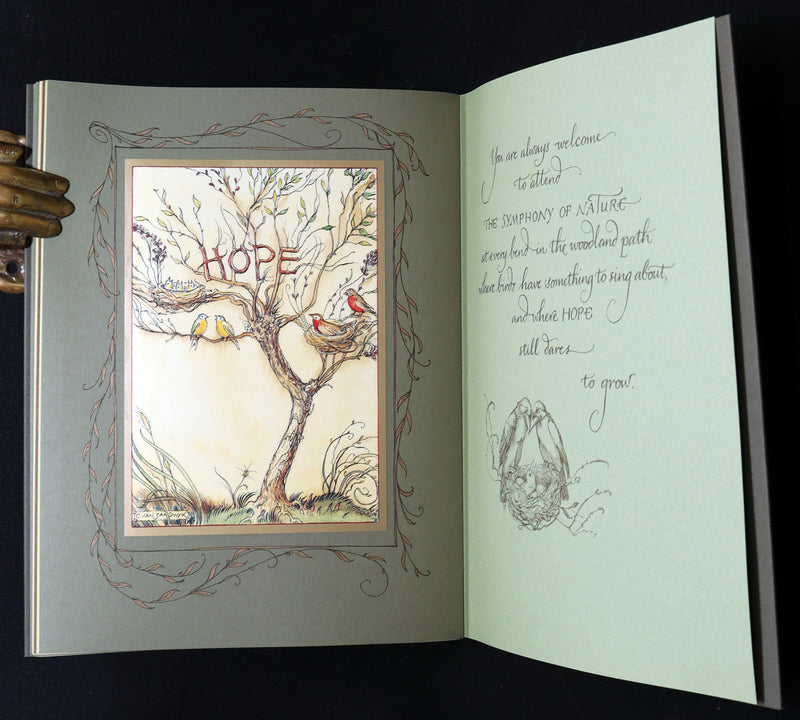 HOPE
C. VAN SANDWYK
You are always welcome
to attend
THE SYMPHONY OF NATURE
at every bend in the woodland path
where birds have something to sing about,
and where HOPE
still dares
to grow.